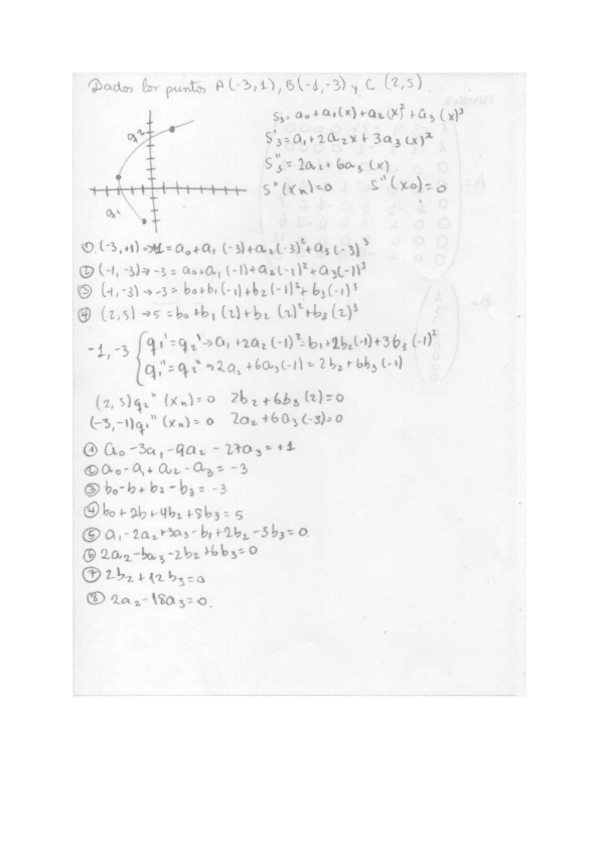 Dados los puntos A(-3,1), B(-1,-3) y C (2,5)
S₃ = a₀ + a₁(x) + a₂(x)² + a₃(x)³
S'₃ = a₁ + 2a₂x + 3a₃(x)²
S''₃ = 2a₂ + 6a₃(x)
S''(xn) = 0 S''(x₀) = 0
q2
q1
① (-3,+1) → 1 = a₀ + a₁(-3) + a₂(-3)² + a₃(-3)³
② (-1,-3) → -3 = a₀ + a₁(-1) + a₂(-1)² + a₃(-1)³
③ (-1,-3) → -3 = b₀ + b₁(-1) + b₂(-1)² + b₃(-1)³
④ (2,5) → 5 = b₀ + b₁(2) + b₂(2)² + b₃(2)³
-1,-3 { q₁' = q₂' → a₁ + 2a₂(-1)² = b₁ + 2b₂(-1) + 3b₃(-1)²
q₁'' = q₂'' → 2a₂ + 6a₃(-1) = 2b₂ + 6b₃(-1)
(2,5) q₂''(xn) = 0 2b₂ + 6b₃(2) = 0
(-3,-1) q₁''(xn) = 0 2a₂ + 6a₃(-3) = 0
① a₀ - 3a₁ - 9a₂ - 27a₃ = +1
② a₀ - a₁ + a₂ - a₃ = -3
③ b₀ - b + b₂ - b₃ = -3
④ b₀ + 2b + 4b₂ + 8b₃ = 5
⑤ a₁ - 2a₂ + 3a₃ - b₁ + 2b₂ - 3b₃ = 0
⑥ 2a₂ - 6a₃ - 2b₂ + 6b₃ = 0
⑦ 2b₂ + 12b₃ = 0
⑧ 2a₂ - 18a₃ = 0.